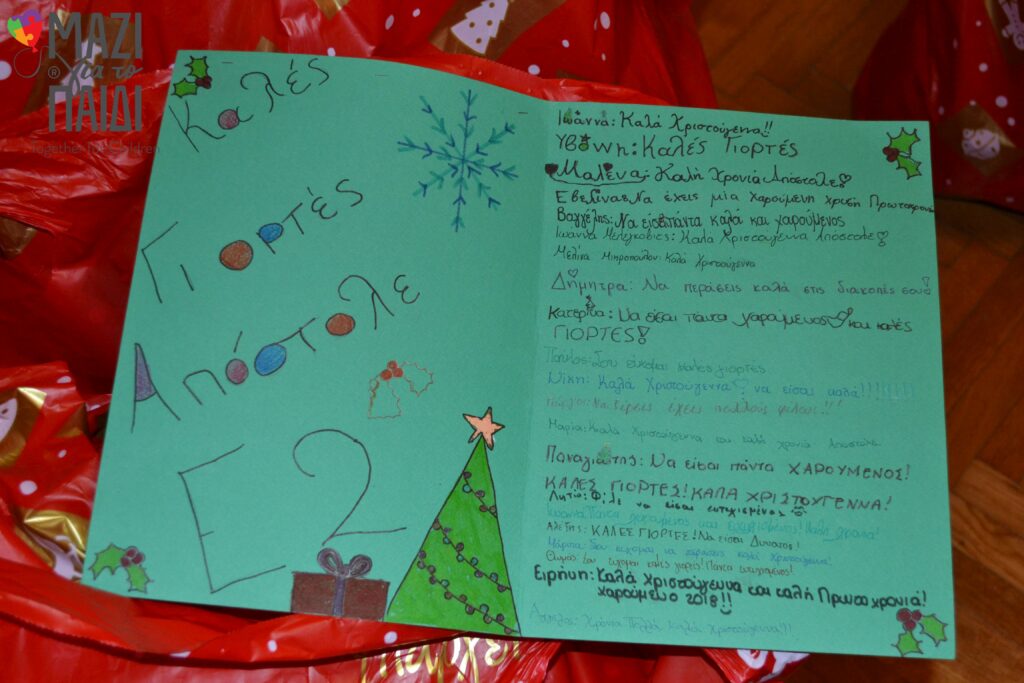 ΜΑΖΙ
για το
ΠΑΙΔΙ
Together for Children
Καλές
Γιορτές
Απόστολε
Ε2
Ιωάννα: Καλά Χριστούγεννα!!
Υβόννη: Καλές Γιορτές
Μαλένα: Καλή Χρονιά Απόστολε!
Εβελίνα: Να έχεις μία χαρούμενη χρυσή Πρωτοχρονιά
Βαγγέλης: Να είσαι πάντα καλά και χαρούμενος
Ιωάννα: Καλά Χριστούγεννα Απόστολε!
Μελίνα Μητροπούλου: Καλά Χριστούγεννα
Δήμητρα: Να περάσεις καλά στις διακοπές σου!
Κατερίνα: Να είσαι πάντα χαρούμενος και καλές
ΓΙΟΡΤΕΣ!
Παύλος: Σου εύχομαι καλές γιορτές
Νίκη: Καλά Χριστούγεννα να είσαι καλά!!!!!!!
Να ξέρεις έχεις πολλούς φίλους!!!
Μαρία: Καλά Χριστούγεννα και καλή χρονιά Απόστολε
Παναγιώτης: Να είσαι πάντα ΧΑΡΟΥΜΕΝΟΣ!
ΚΑΛΕΣ ΓΙΟΡΤΕΣ! ΚΑΛΑ ΧΡΙΣΤΟΥΓΕΝΝΑ!
Λητώ: Φίλε να είσαι ευτυχισμένος
Ιωάννα: Πάντα χαρούμενος και ευτυχισμένος! Καλή χρονιά!
ΚΑΛΕΣ ΓΙΟΡΤΕΣ! Να είσαι Δυνατός!
Μάριπα: Σου εύχομαι να περάσεις καλά Χριστούγεννα!
Σου εύχομαι καλές γιορτές! Πάντα ευτυχισμένος!
Ειρήνη: Καλά Χριστούγεννα και καλή Πρωτοχρονιά!
χαρούμενο 2018!!
Χρόνια Πολλά Καλά Χριστούγεννα!!